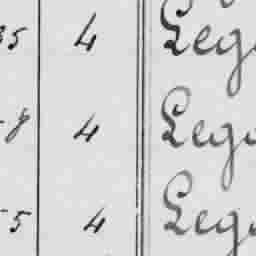 35 4 Lega
4 Lega
5 4 Lega